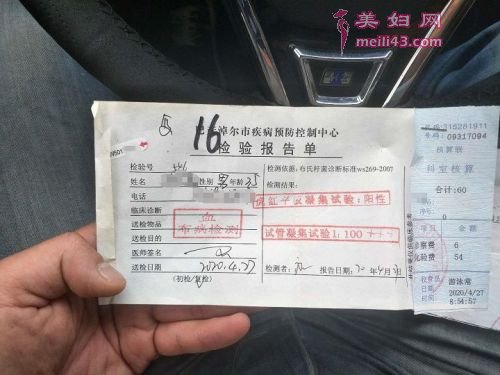 美妇网
meili43.com
16
巴彦淖尔市疾病预防控制中心
检验报告单
检验号
检测依据:布氏杆菌诊断标准ws269-2007
姓名 性别 男 年龄 35
检测结果:
电话
虎红平板凝集试验:阳性
临床诊断
送检物品
血
布病检测
试管凝集试验1:100+++
送检目的
医师签名
送检日期 2020.4.27
检测者: 报告日期: 20年4月
(初检/复检)
09317094
核算联
科室核算
合计:60
察费 6
化验费 54
收费员 游泳常
日期 2020/4/27
8:54:57